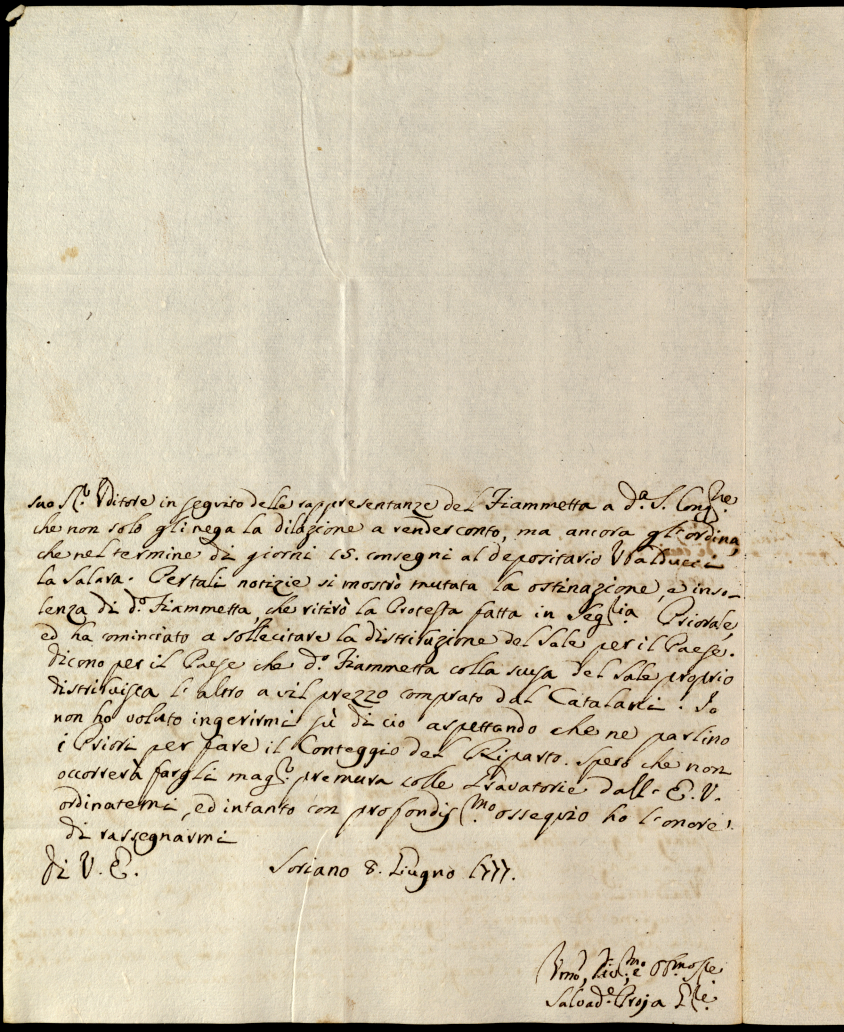 suo Sig.r Uditore in seguito delle rappresentanze del Fiammetta a d.a S. Cong.ne
che non solo gli nega la dilazione a render conto, ma ancora gli ordina,
che nel termine di giorni 15. consegni al depositario Valducci
la Salara. Per tali notizie si mostrò mutata la ostinazione, e inso-
lenza di d.o Fiammetta, che ritirò la Protesta fatta in Seg.ria Priorale,
ed ha cominciato a sollecitare la distribuzione del Sale per il Paese.
Dicono per il Paese che d.o Fiammetta colla scusa del Sale proprio
distribuisca l'altro a vil prezzo comprato dal Catalani. Io
non ho voluto ingerirmi sù di cio aspettando che ne parlino
i Priori per fare il Conteggio del Riparto. Spero che non
occorrerà fargli mag.r premura colle Gravatorie dall'E.V.
ordinatemi, ed intanto con profondis.mo ossequio ho l'onore
di rassegnarmi
Di V. E. Soriano 8. Giugno 1777.
Um.o, Div.mo, e Obb.mo Se
Salvad.e Proja